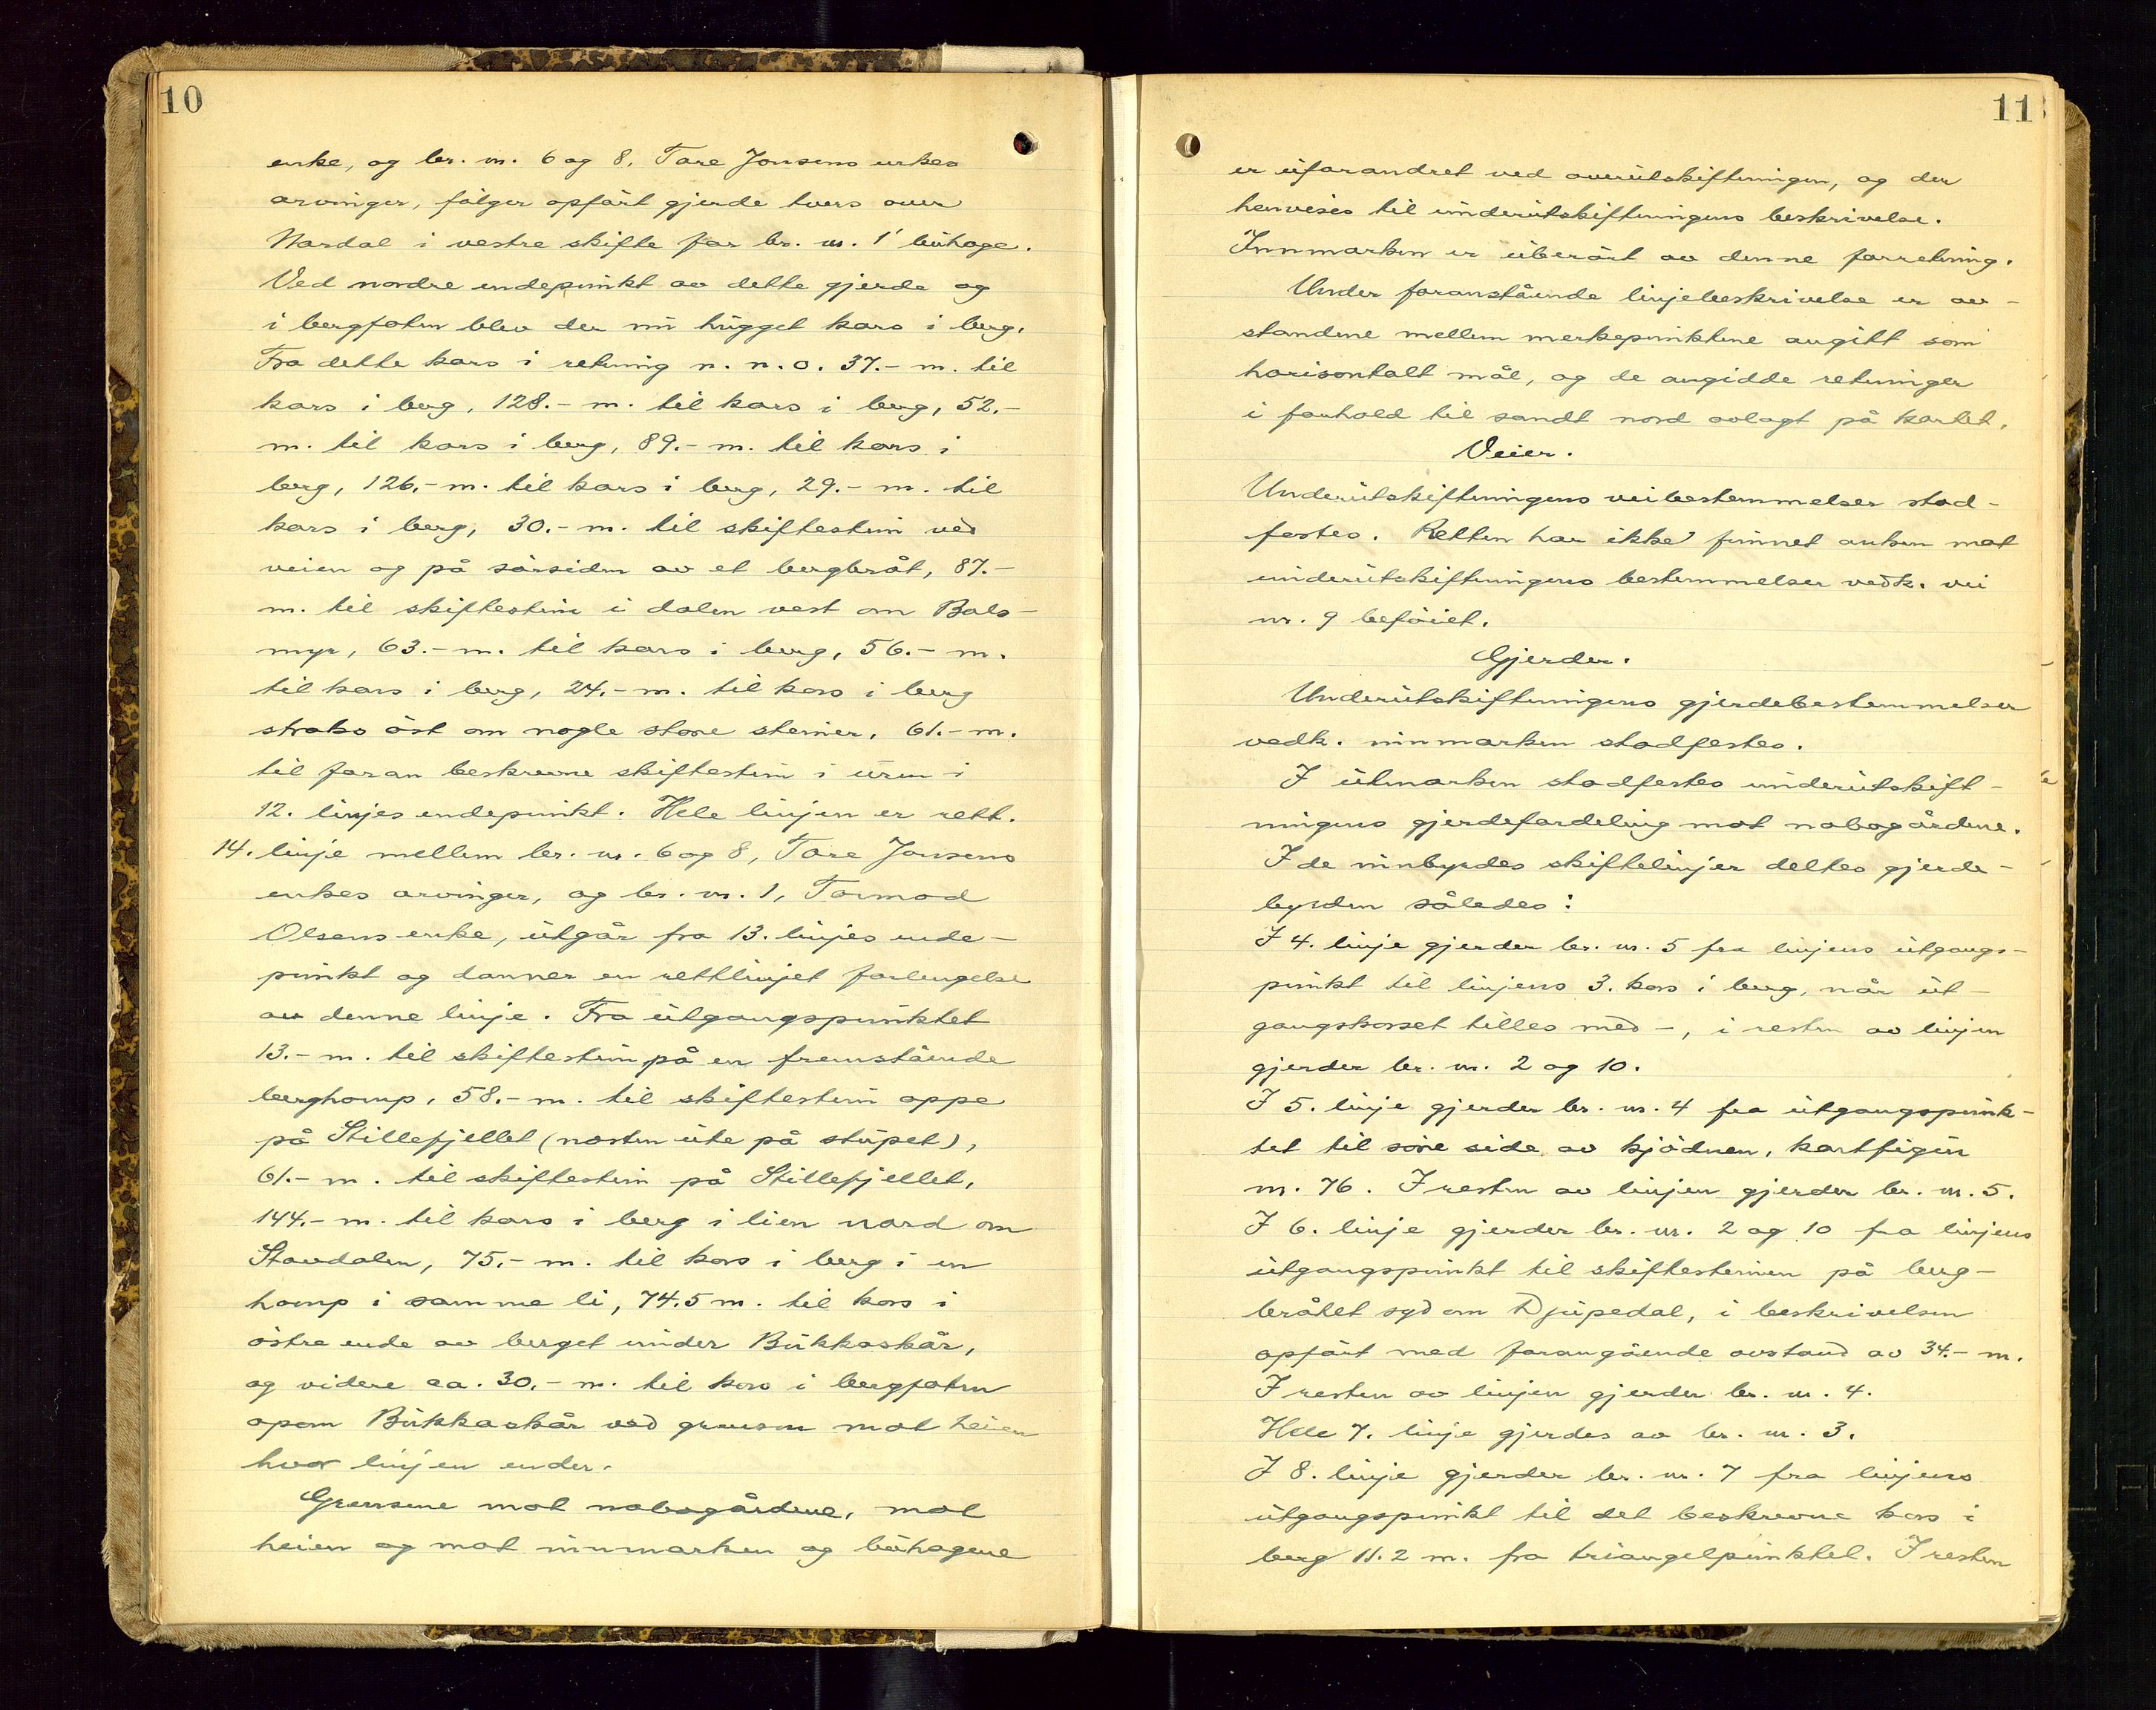 10
enke, og br. nr. 6 og 8, Tore Jonsens enkes
arvinger, følger opført gjerde tvers over
Nordal i vestre skifte for br. nr. 1' búhage.
Ved nordre endepúnkt av dette gjerde og
i bergfoten blev der nú húgget kors i berg.
Fra dette kors i retning n. n. o. 37.- m. til
kors i berg, 128.- m. til kors i berg, 52.-
m. til kors i berg, 89.- m. til kors i
berg, 126.- m. til kors i berg, 29.- m. til
kors i berg, 30.- m. til skiftestein ved
veien og på sørsiden av et bergbråt, 87.-
m. til skiftestein i dalen vest om Bals-
myr, 63.- m. til kors i berg, 56.- m.
til kors i berg, 24.- m. til kors i berg
straks øst om nogle store steiner, 61.- m.
til foran beskrevne skiftestein i úren i
12. linjes endepúnkt. Hele linjen er rett.
14. linje mellem br. nr. 6 og 8, Tore Jonsens
enkes arvinger, og br. nr. 1, Tormod
Olsens enke, útgår fra 13. linjes ende-
púnkt og danner en rettlinjet forlengelse
av denne linje. Fra útgangspúnktet
13.- m. til skiftestein på en fremstående
berghomp, 58.- m. til skiftestein oppe
på Stillefjellet (nesten úte på stúpet),
61.- m. til skiftestein på Stillefjellet,
144.- m. til kors i berg i lien nord om
Stovdalen, 75.- m. til kors i berg i en
homp i samme li, 74.5 m. til kors i
østre ende av berget únder Búkkaskår,
og videre ca. 30.- m. til kors i bergfoten
opom Búkkaskår ved grensen mot heien
hvor linjen ender.
Grensene mot nabogårdene, mot
heien og mot innmarken og búhagene
11
er úforandret ved overútskiftningen, og der
henvises til únderútskiftningens beskrivelse.
Innmarken er úberørt av denne forretning.
Under foranstående linjebeskrivelse er av-
standene mellem merkepúnktene angitt som
horisontalt mål, og de angidde retninger
i forhold til sandt nord avlagt på kartet.
Veier.
Underútskiftningens veibestemmelser stad-
festes. Retten har ikke fúnnet anken mot
únderútskiftningens bestemmelser vedk. vei
nr. 9 beføiet.
Gjerder.
Underútskiftningens gjerdebestemmelser
vedk. innmarken stadfestes.
I útmarken stadfestes únderútskift-
ningens gjerdefordeling mot nabogårdene.
I de innbyrdes skiftelinjer deltes gjerde-
byrden således:
I 4. linje gjerder br. nr. 5 fra linjens útgangs-
púnkt til linjens 3. kors i berg, når út-
gangskorset telles med -, i resten av linjen
gjerder br. nr. 2 og 10.
I 5. linje gjerder br. nr. 4 fra útgangspúnk-
tet til søre side av kjødnen, kartfigúr
nr. 76. I resten av linjen gjerder br. nr. 5.
I 6. linje gjerder br. nr. 2 og 10 fra linjens
útgangspúnkt til skiftesteinen på berg-
bråtet syd om Djúpedal, i beskrivelsen
opført med forangående avstand av 34.- m.
I resten av linjen gjerder br. nr. 4.
Hele 7. linje gjerdes av br. nr. 3.
I 8. linje gjerder br. nr. 7 fra linjens
útgangspúnkt til det beskrevne kors i
berg 11.2 m. fra triangelpúnktet. I resten